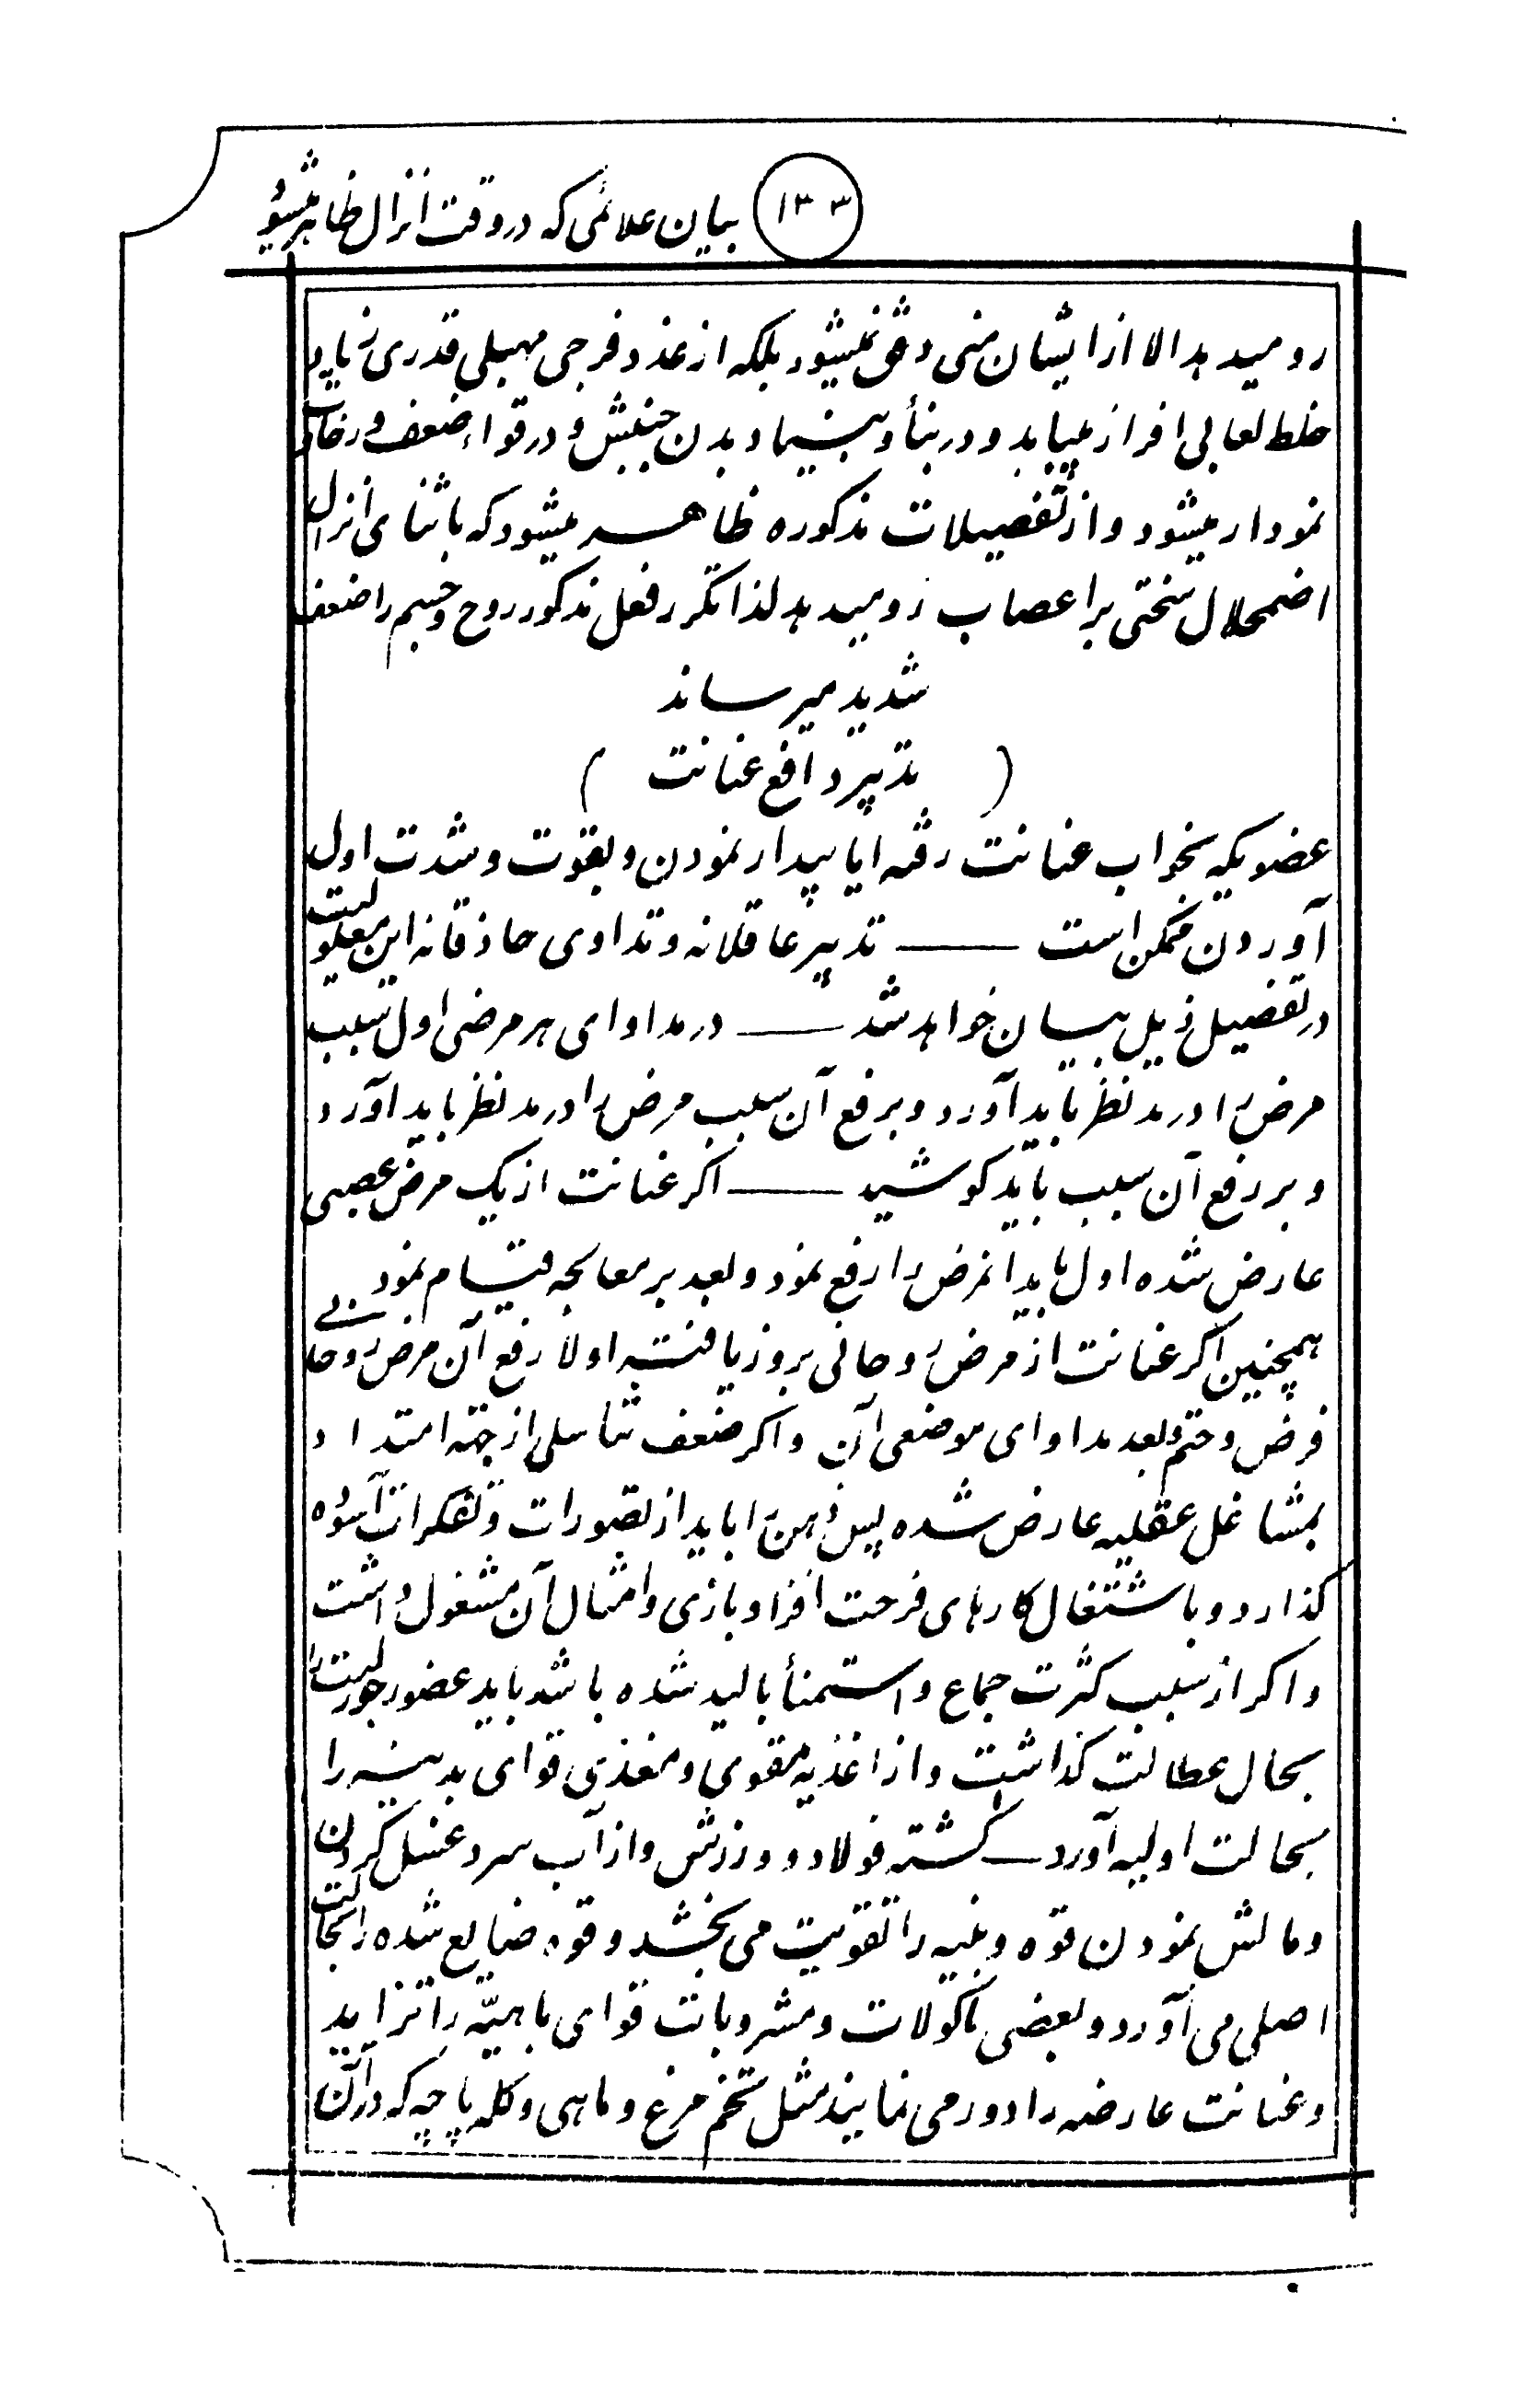 ۱۳۳ بیان علائمی که در وقت انزال ظاهر میشود
رو میدهد الا از ایشان منی دفق نمیشود بلکه از غدد فرجی مهبلی قدری زیاد
خلط لعابی افراز مییابد و در بنأ و بنسیما و بدن جنبش و در قواء ضعف و رخاوت
نمودار میشود و از تفصیلات مذکوره ظاهر میشود که باثنای انزال
اضمحلال سختی بر اعصاب رو میدهد لذا تکرر فعل مذکور روح و جسم را ضعف
شدید میرساند
( تدبیر دافع عنانت )
عضویکه بخواب عنانت رفته ایا بیدار نمودن و بقوت و شدت اول
آوردن ممکن است —— تدبیر عاقلانه و تداوی حاذقانه این معلولیت
در تفصیل ذیل بیان خواهد شد —— در مداوای هر مرضی اول سبب
مرض را در مد نظر باید آورد و برفع آن سبب مرض را در مد نظر باید آورد
و بر رفع آن سبب باید کوشید —— اکر عنانت از یک مرض عصبی
عارض شده اول باید انمرض را رفع نمود و بعد بر معالجه قیام نمود
همچنین اکر عنانت از مرض روحانی بروز یافته اولا رفع آن مرض روحانی
فرض و حتم و بعد مداوای موضعی آن و اکر ضعف تناسلی از جهته امتداد
بمشاغل عقلیه عارض شده پس ذهن را باید از تصورات و تفکرات آسوده
کذارد و باشتغال کارهای فرحت افزا و بازی و امثال آن مشغول داشت
و اکر از سبب کثرت جماع و استمنأ بالید شده باشد باید عضو رجولیت را
بحال عطالت کذاشت و از اغذیه مقوی و مغذی قوای بدنیه را
بحالت اولیه آورد — کشته فولاد و ورزش و از آب سرد غسل کردن
و مالش نمودن قوه و بنیه را تقویت می بخشد و قوه ضایع شده را بحالت
اصلی می آورد و بعضی ماکولات و مشروبات قوای باهیّه را تزاید
و عنانت عارضه را دور می نمایند مثل تخم مرغ و ماهی و کله پاچه که در آن